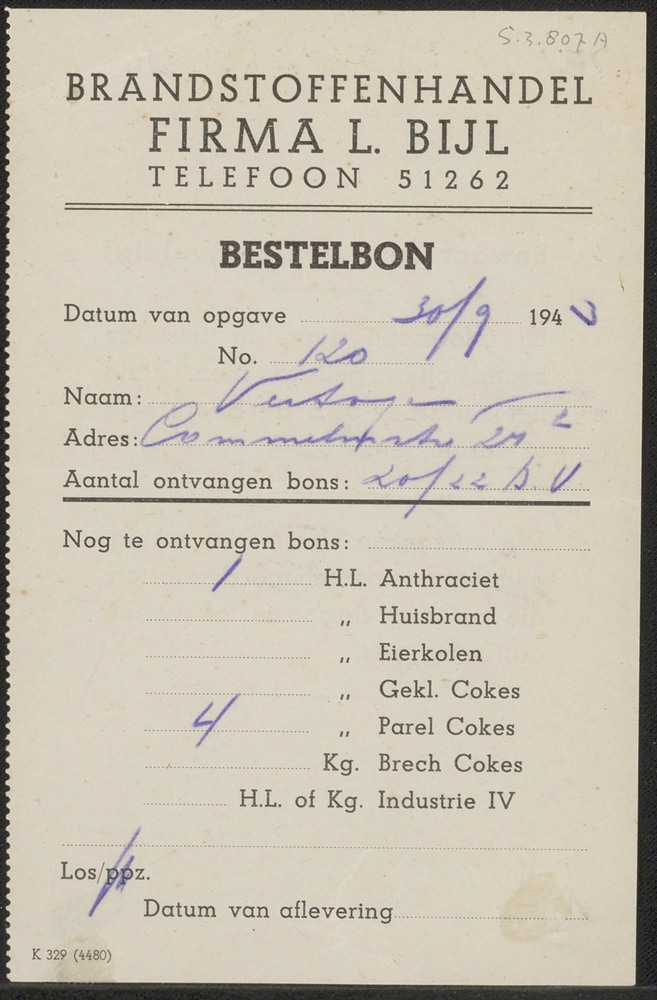 S.3.807A
BRANDSTOFFENHANDEL
FIRMA L. BIJL
TELEFOON 51262
BESTELBON
Datum van opgave 30/9 1943
No. 120
Naam:
Adres:
Aantal ontvangen bons: 20/22 B.V
Nog te ontvangen bons:
1 H.L. Anthraciet
„ Huisbrand
„ Eierkolen
„ Gekl. Cokes
4 „ Parel Cokes
Kg. Brech Cokes
H.L. of Kg. Industrie IV
Los/ppz.
Datum van aflevering
K 329 (4480)